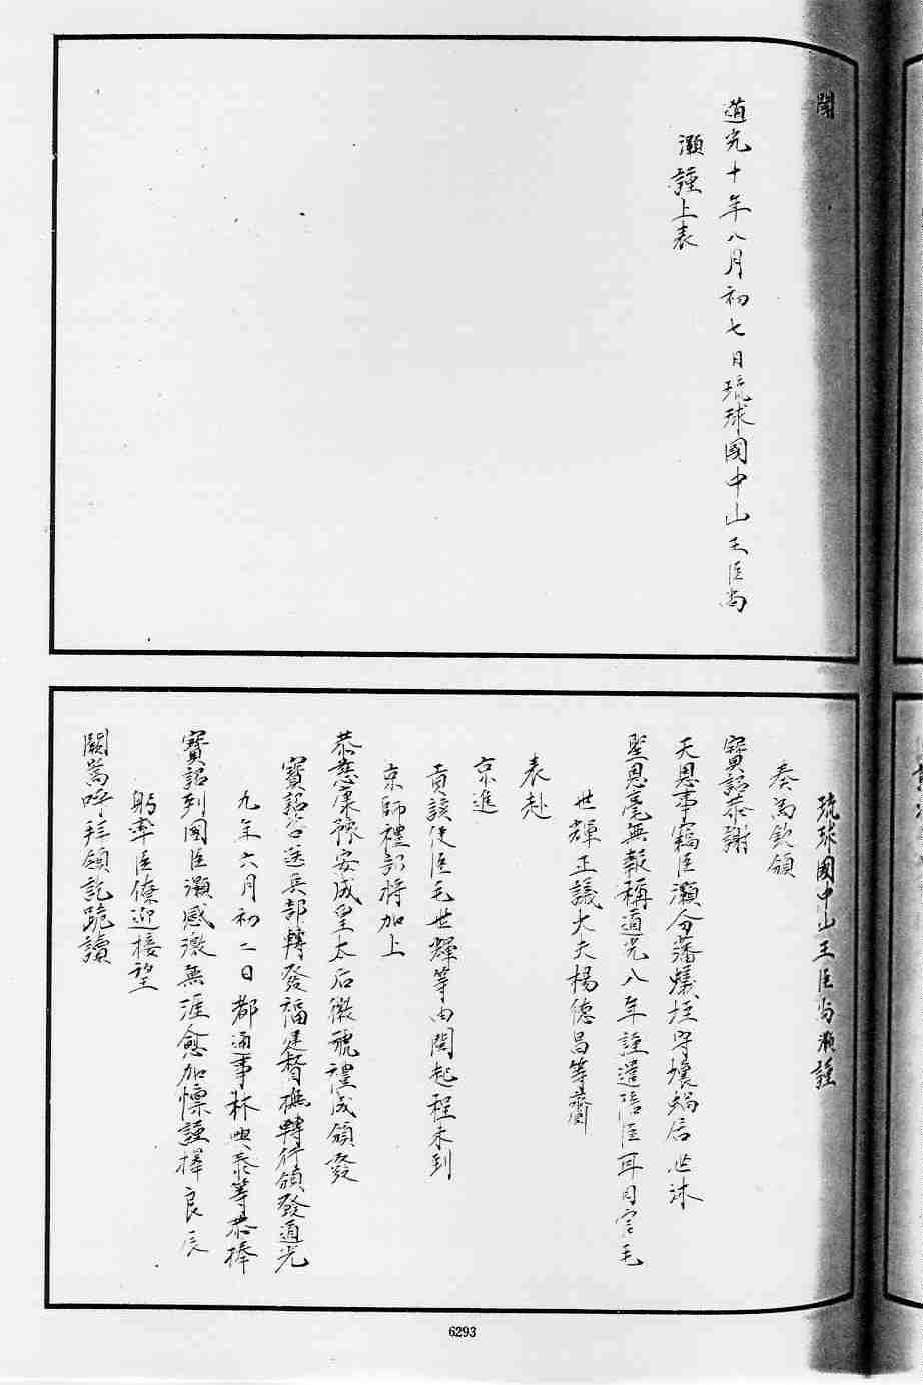 聞
道光十年八月初七日琉球國中山王臣尚
灝謹上表
琉球國中山王臣尚灝謹
奏為欽頒
寶詔恭謝
天恩事竊臣灝分藩蟻垤守壤蝸居世沐
聖恩毫無報稱道光八年謹遣陪臣耳目官毛
世輝正議大夫楊德昌等齎
表赴
京進
貢該使臣毛世輝等由閩起程未到
京師禮部將加上
恭慈康豫安成皇太后徽號禮成頒發
寶詔咨送兵部轉發福建督撫轉行頒發道光
九年六月初二日都通事林興泰等恭捧
寶詔到國臣灝感激無涯愈加懍謹擇良辰
躬率臣僚迎接望
闕嵩呼拜領訖跪讀
6293